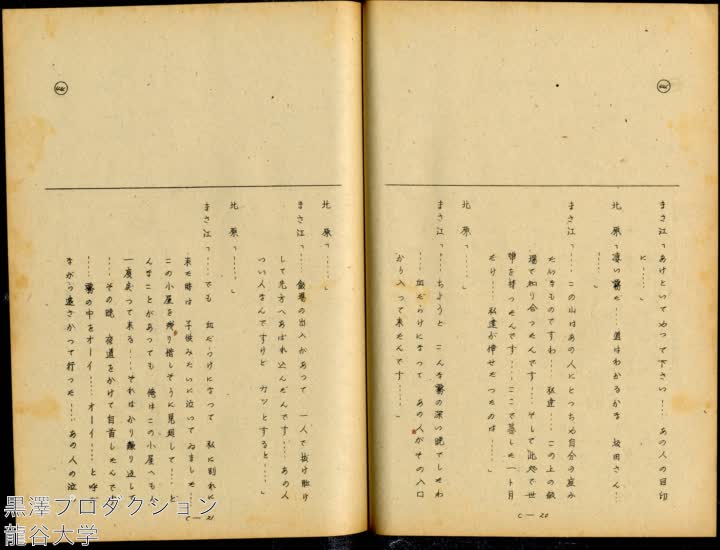 まさ江「あけといてやって下さい……あの人の目印
に……」
北　原「凄い霧だ……道はわかるかな　坂田さん…」
まさ江「……この山はあの人にとっちゃ自分の庭み
たいなものですわ……私達……この上の鉱
場で知り合ったんです……そして此処で世
帯を持ったんです……ここで暮した一ト月
だけ……私達が倖せだったのは……」
北　原「……」
まさ江「……ちょうど　こんな霧の深い晩でしたわ
……血だらけになって　あの人がその入口
から入って来たんです……」
C—20
北　原「……」
まさ江「……金場の出入があって　一人で抜け駈け
して先方へあばれ込んだんです……あの人
つい人なんですけど　カッとすると……」
北　原「……」
まさ江「……でも　血だらけになって　私に別れに
来た時は　子供みたいに泣いてゐました…
この小屋を残り惜しそうに見廻して……ど
んなことがあっても　俺はこの小屋へもう
一度戻って来る……そればかり繰り返して
…その晩　夜道をかけて自首したんです
……霧の中をオーイ……オーイ……と呼び
ながら遠ざかって行った……あの人の泣
C—21
黒澤プロダクション
龍谷大学